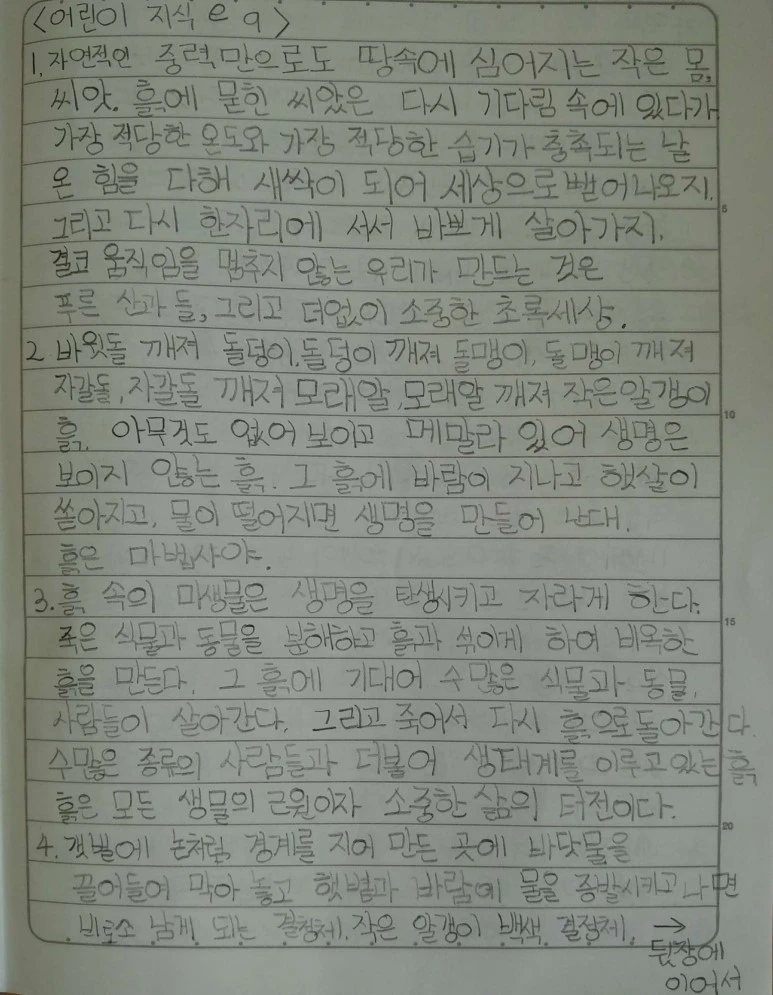 <어린이 지식 e 9>
1. 자연적인 중력만으로도 땅속에 심어지는 작은 몸,
씨앗. 흙에 묻힌 씨앗은 다시 기다림 속에 있다가
가장 적당한 온도와 가장 적당한 습기가 충족되는 날
온 힘을 다해 새싹이 되어 세상으로 뻗어나오지.
그리고 다시 한자리에 서서 바쁘게 살아가지.
결코 움직임을 멈추지 않는 우리가 만드는 것은
푸른 산과 들, 그리고 더없이 소중한 초록세상.
2. 바윗돌 깨져 돌덩이, 돌덩이 깨져 돌맹이, 돌맹이 깨져
자갈돌, 자갈돌 깨져 모래알, 모래알 깨져 작은알갱이
흙. 아무것도 없어 보이고 메말라 있어 생명은
보이지 않는 흙. 그 흙에 바람이 지나고 햇살이
쏟아지고, 물이 떨어지면 생명을 만들어 난대.
흙은 마법사야.
3. 흙 속의 미생물은 생명을 탄생시키고 자라게 한다.
죽은 식물과 동물을 분해하고 흙과 섞이게 하여 비옥한
흙을 만든다. 그 흙에 기대어 수많은 식물과 동물,
사람들이 살아간다. 그리고 죽어서 다시 흙으로돌아간다.
수많은 종류의 사람들과 더불어 생태계를 이루고있는 흙
흙은 모든 생물의 근원이자 소중한 삶의 터전이다.
4. 갯벌에 논처럼 경계를 지어 만든 곳에 바닷물을
끌어들여 막아 놓고 햇볕과 바람에 물을 증발시키고나면
비로소 남게 되는 결정체. 작은 알갱이 백색 결정체. →
뒷장에
이어서